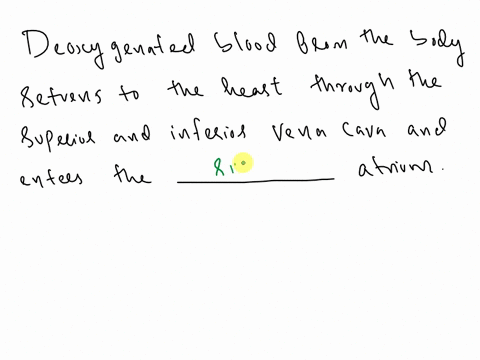 Deoxygenated blood from the body
returns to the heart through the
superior and inferior vena cava and
enters the ri atrium.